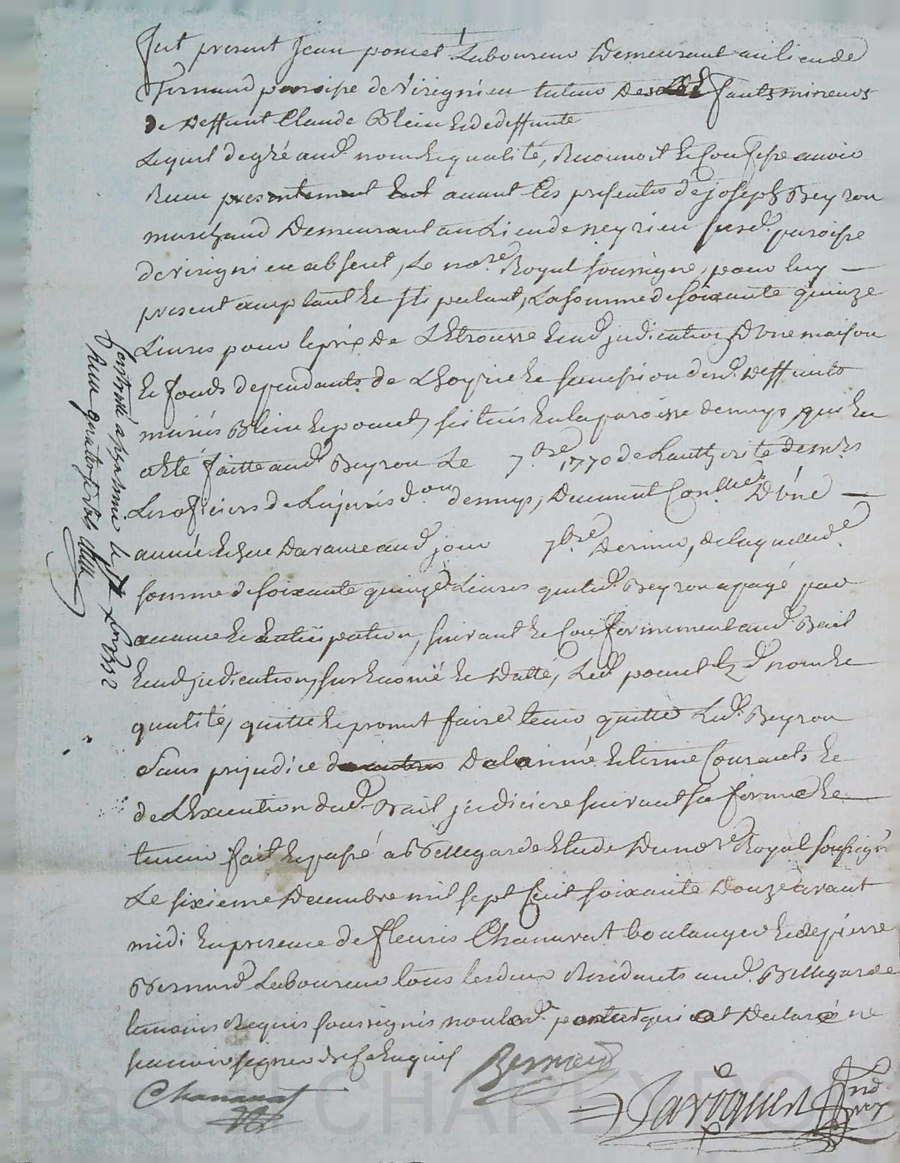 fut present Jean poncet Laboureur Demeurant au lieu de
paroisse de Virignieu tuteur Des fants mineurs
de Deffunt Claude Blein et de deffunte
Lequel de gré aud. nom et qualité, Reconnoit et Confesse avoir
Receu presentement avant les presentes de Joseph Beyron
marchand Demeurant au Lieu de neyrieu susd. paroisse
de virignieu absent, Le nore. Royal soussigné, pour luy
present acceptant et stipulant, La somme de soixante quinze
Livres pour le prix de D'une maison
et fonds dependants de et succession desd. Deffunts
mariés Blein et poncet, scitués En la paroisse de
a Eté faitte aud. Beyron Le 7.bre 1770 de Lautorité de
Les oficiers de La juris.don de D'une
année Echue D'avance aud. jour 7bre Dernier, de laquelle
somme de soixante quinze Livres que led. Beyron a payé par
avance et anticipation, suivant et Conformement aud. Bail
judication, sus Enoncé et Datté, Led. poncet Esd. nom et
qualité, quitte et promet faire tenir quitte Led. Beyron
Sans prejudice De lannée et terme Courants et
de L'Execution dud. Bail judiciere suivant sa forme et
teneur fait et passé a Bellegarde Etude Du nore. Royal soussigné
Le sixieme Decembre mil sept Cent soixante Douze avant
midi En presence de fleuris Chanavat boulanger et de pierre
Bernard Laboureur tous les deux Residants aud. Bellegarde
temoins Requis soussignés non led. poncet qui a Declaré ne
scavoir signer de ce Enquis
Bernard
Chanavat
Controllé a le 7 1772
Receu quatorze sols
Pascal CHARLEYRON